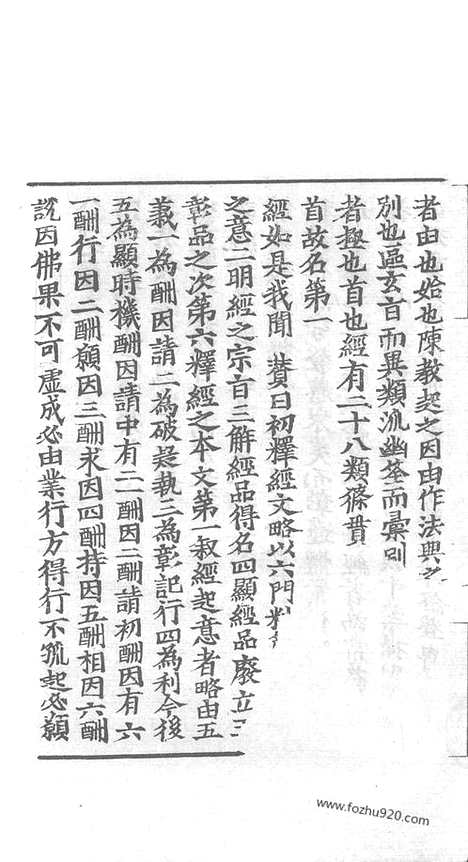 者由也始也陳教起之因由作法興之
別也區玄旨而異類派幽筌而彙別
者極也首也經有二十八類篠貫
首故名第一
經如是我聞　賛曰初釋經文略以六門料
之意二明經之宗旨三解經品得名四顯經品廢立
彰品之次第六釋經之本文第一叙經起意者略由五
義一為酬因請二為破疑執三為彰記行四為利今後
五為顯時機酬因請中有二一酬因二酬請初酬因有六
一酬行因二酬願因三酬求因四酬持因五酬相因六酬
説因佛果不可虛成必由業行方得行不孤起必願
www.fozhu920.com